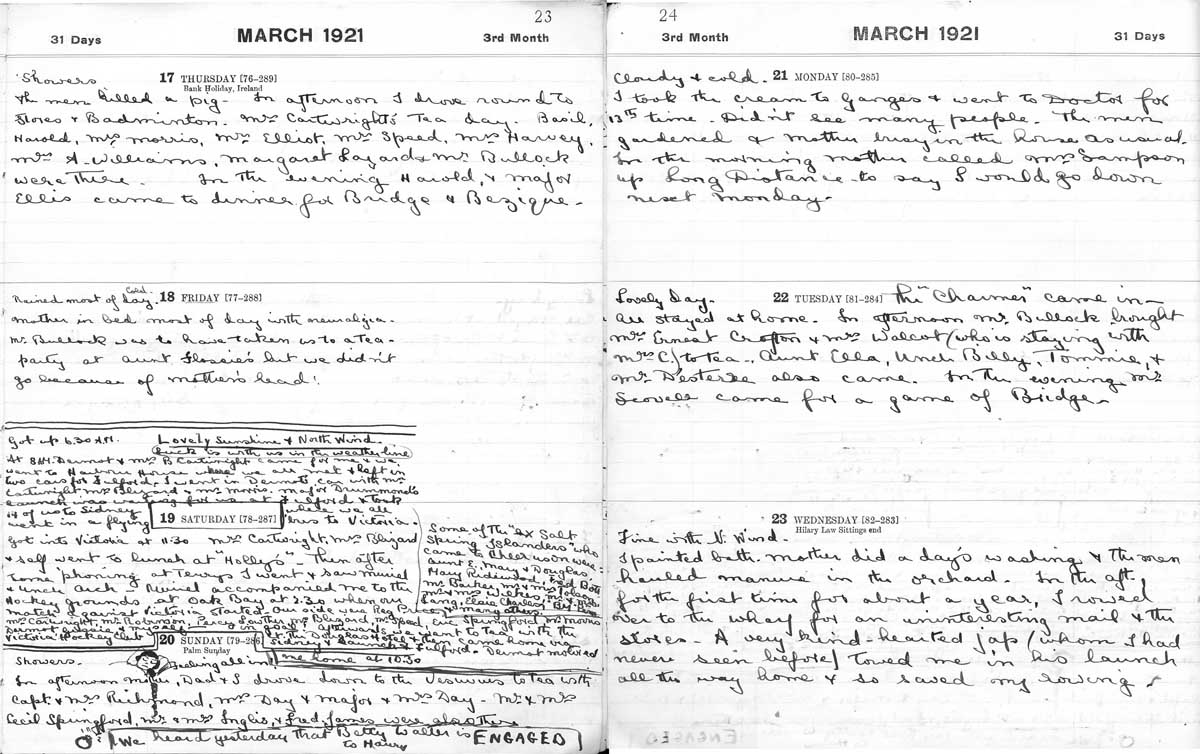 23
31 Days
MARCH 1921
3rd Month
Showers
17 THURSDAY [76-289]
Bank Holiday, Ireland
the men killed a pig - In afternoon I drove round to
stores & Badminton. Mrs Cartwright's Tea day - Basil,
Harold, Mrs Morris, Mrs Elliot, Mr Speed, Mrs Harvey,
Mrs A. Williams, Margaret & Mr Bullock
were there. In the evening Harold, & Major
Ellis came to dinner for Bridge & Bezique -
Rained most of day. Cold.
18 FRIDAY [77-288]
Mother in bed most of day with neuralgia -
Mr Bullock was to have taken us to a Tea -
party at Aunt Flossie's but we didn't
go because of mother's head!
Got up 6.30 A.M. Lovely Sunshine & North Wind -
Luck is with us in the weather line
At 8 A.M. Dermot & Mrs B Cartwright came for me & we
went to Harbour House where we all met & left in
two cars for Fulford. I went in Dermot's car with Mr
Cartwright, Mr Blizard & Mr Morris. Major Drummond's
launch was waiting for us at Fulford & took
14 of us to Sidney where we all
went in a flying
19 SATURDAY [78-287]
'bus to Victoria -
Got into Victoria at 11.30 Mrs Cartwright, Mrs Blizard
& self went to lunch at "Holly's" - Then after
some phoning at Terrys I went & saw Muriel
& Uncle Arch - Muriel accompanied me to the
Hockey grounds at Oak Bay at 2.30 where our
match against Victoria started. Our side was Reg Price,
Mr Cartwright, Mr Robinson, Percy Lowther, Mr Blizard, Mr Speed, Eric Springford, Mr Morris
Victoria Hockey Club
Some of the "ex Salt
Spring Islanders" who
came to cheer us on were
Aunt E, Mary & Douglas,
many others
Fulford - Dermot motored
me home at 10.30
20 SUNDAY [79-286]
Palm Sunday
Showers.
Feeling all in!
In afternoon Dad & I drove down to the Vesuvius to tea with
Capt & Mrs Richmond, Mrs Day & Major & Mrs Day - Mr & Mrs
Cecil Springford, Mr & Mrs Ingles, & Fred James were also there
We heard yesterday that Betty Walter is ENGAGED
to Harry
24
3rd Month
MARCH 1921
31 Days
Cloudy & cold.
21 MONDAY [80-285]
I took the cream to Ganges & went to Doctor for
13th time - Didn't see many people. The men
gardened & mother busy in the house as usual.
In the morning mother called Mrs Sampson
up Long Distance to say I would go down
next Monday -
Lovely day -
22 TUESDAY [81-284]
The "Charmer" came in -
All stayed at home. In afternoon Mr Bullock brought
Mrs Ernest Crofton & Mrs Walcot (who is staying with
Mrs C) to tea. Aunt Ella, Uncle Billy, Tommie, &
Mr D'Esterre also came. In the evening Mr
Scovell came for a game of Bridge -
23 WEDNESDAY [82-283]
Hilary Law Sittings end
Fine with N. Wind -
I painted bath. Mother did a day's washing & the men
hauled manure in the orchard - In the aft,
for the first time for about a year, I rowed
over to the wharf for an uninteresting mail & the
stores - A very kind-hearted jap (whom I had
never seen before) towed me in his launch
all the way home & so saved my rowing!